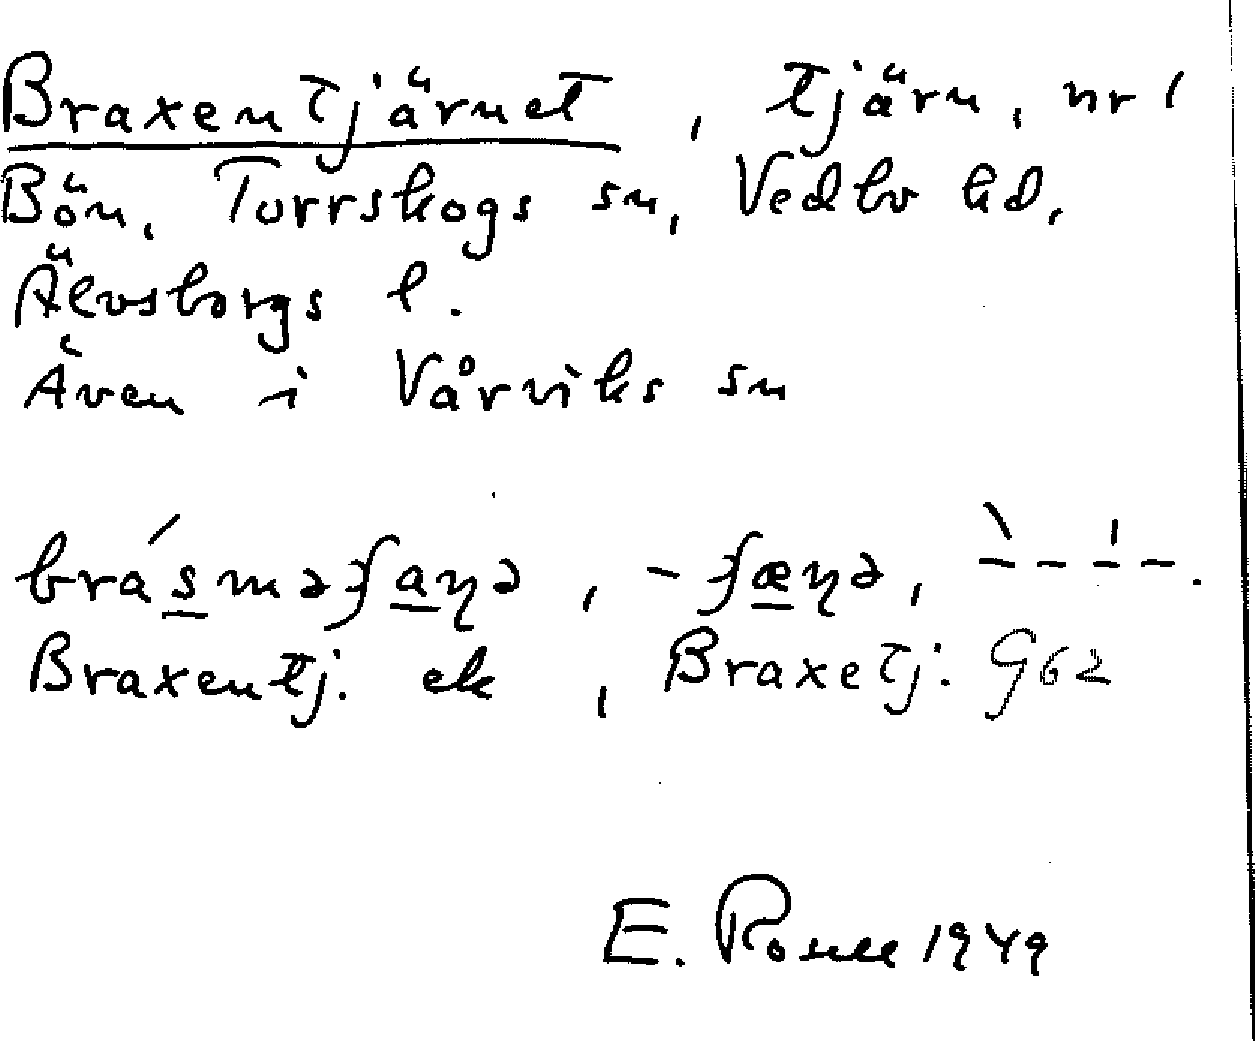 Braxentjärnet, tjärn, nr 1
Bön, Torrskogs sn, Vedbo hd,
Älvsborgs l.
Även i Vårviks sn
bra´sməʃaɳə, -ʃæɳə,
Braxentj. ek, Braxetj. G62
E. 1949